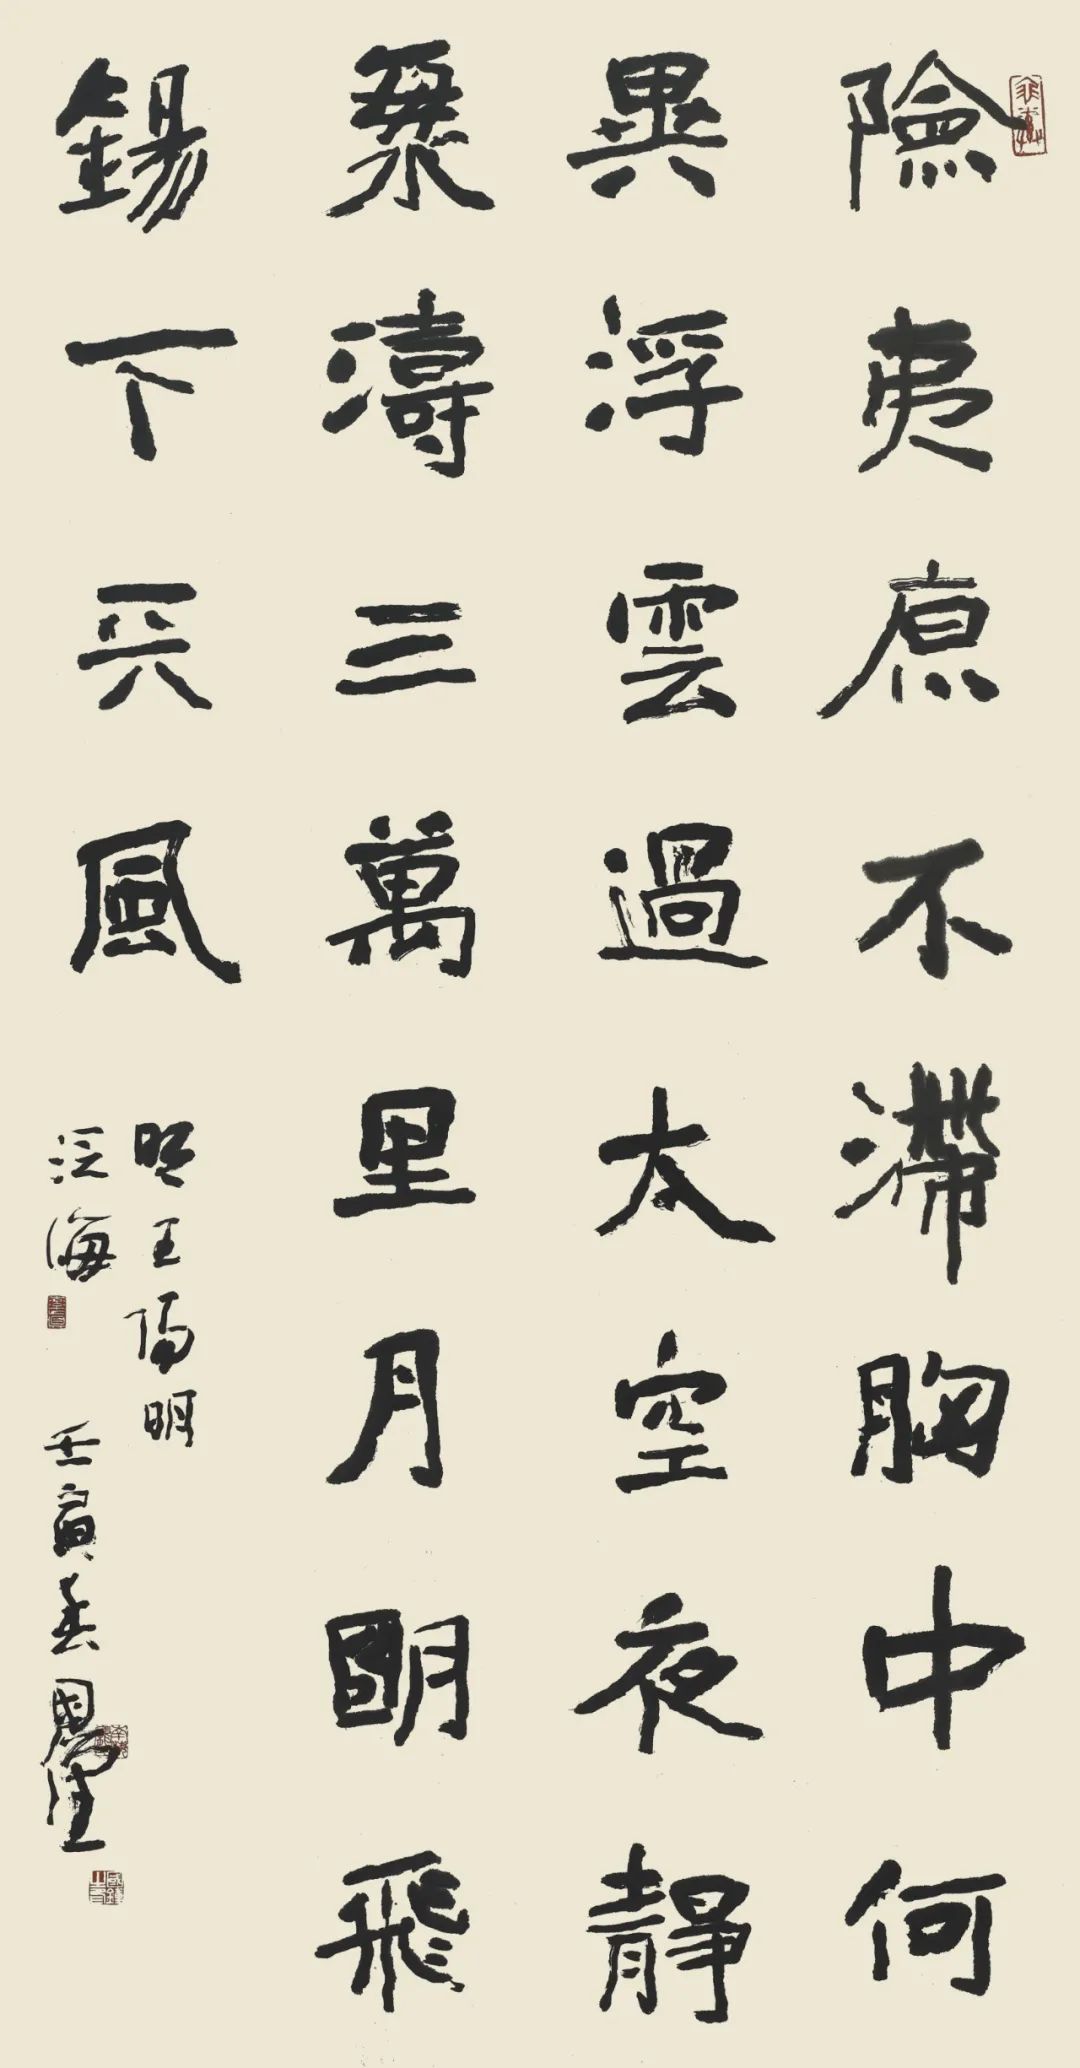 險夷原不滯胸中何
異浮雲過太空夜靜
海濤三萬里月明飛
錫下天風
明王陽明
泛海 壬寅春